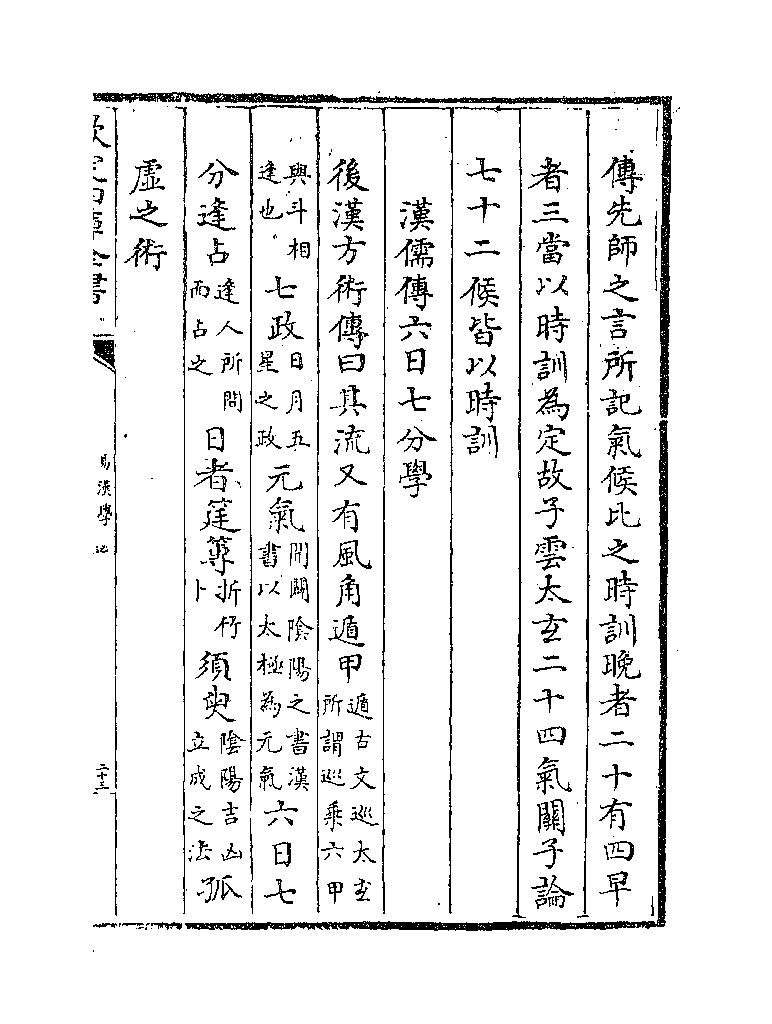 傳先師之言所記氣候比之時訓晚者二十有四早
者三當以時訓為定故子雲太玄二十四氣關子論
七十二候皆以時訓
漢儒傳六日七分學
後漢方術傳曰其流又有風角遁甲遁古文巡太玄所謂巡乗六甲
與斗相逢也七政日月五星之政元氣開闢隂陽之書漢書以太極為元氣六日七
分逢占逢人所問而占之日者筳篿折竹卜須臾隂陽吉凶立成之法孤
虛之術
欽定四庫全書
易漢學